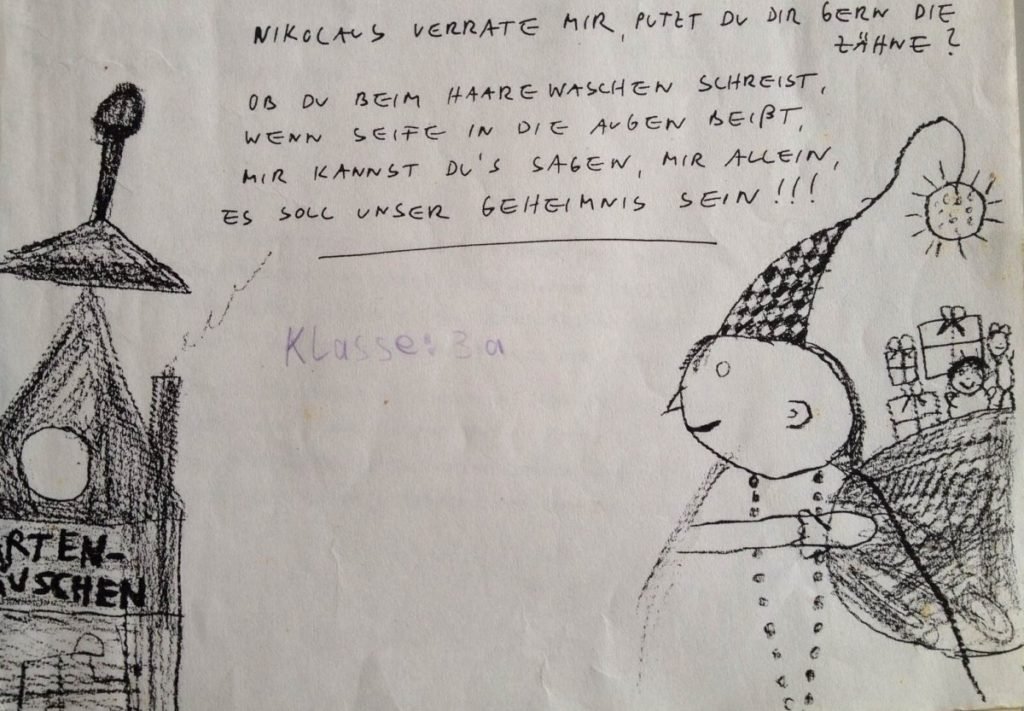 NIKOLAUS VERRATE MIR, PUTZT DU DIR GERN DIE
ZÄHNE?
OB DU BEIM HAAREWASCHEN SCHREIST,
WENN SEIFE IN DIE AUGEN BEIßT,
MIR KANNST DU'S SAGEN, MIR ALLEIN,
ES SOLL UNSER GEHEIMNIS SEIN!!!
Klasse: 3a
ARTEN-
ÄUSCHEN